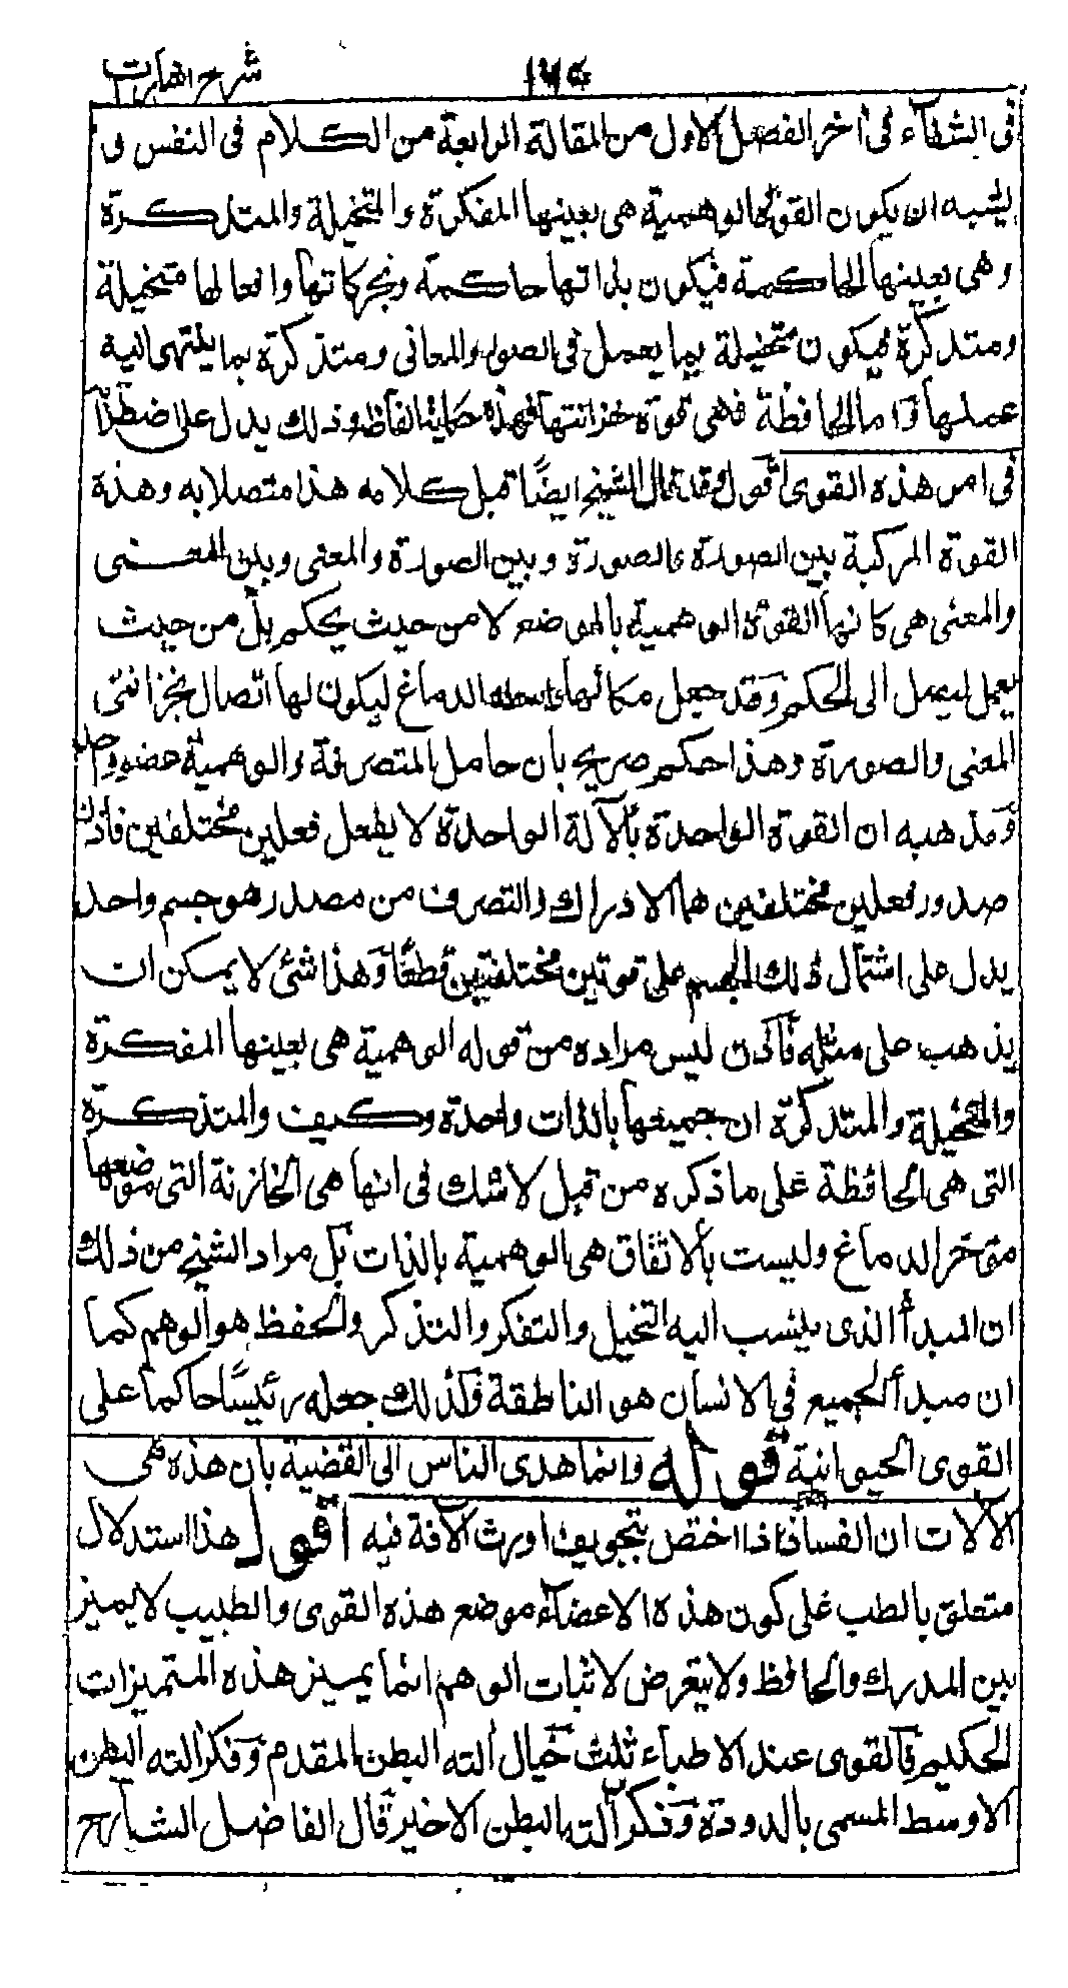 ١٦٥ شرح اشارات
فى الشفآء فى آخر الفصل الاول من المقالة الرابعة من الكلام فى النفس و
يشبه ان يكون القوة الوهمية هى بعينها المفكرة والمتخيلة والمتذكرة
وهى بعينها الحاكمة فيكون بذاتها حاكمة وبحركاتها وافعالها متخيلة
ومتذكرة فيكون متخيلة بما يعمل فى الصور والمعانى ومتذكرة بما ينتهى اليه
عملها واما الحافظة فهى قوة خزانتها فهذه حكاية الفاظه وذلك يدل على اضطرابه
فى امر هذه القوى اقول وقد قال الشيخ ايضًا قبل كلامه هذا متصلا به وهذه
القوة المركبة بين الصورة والصورة وبين الصورة والمعنى وبين المعنى
والمعنى هى كانها القوة الوهمية بالموضع لا من حيث يحكم بل من حيث
يعمل ليصل الى الحكم وقد جعل مكانها وسط الدماغ ليكون لها اتصال بخزانتى
المعنى والصورة وهذا حكم صريح بان حامل المتصرفة والوهمية عضو واحد
ومذهبه ان القوة الواحدة بالآلة الواحدة لا يفعل فعلين مختلفين فاذن
صدور فعلين مختلفين هما الادراك والتصرف من مصدر هو جسم واحد
يدل على اشتمال ذلك الجسم على قوتين مختلفتين قطعًا وهذا شئ لا يمكن ان
يذهب على مثله فاذن ليس مراده من قوله الوهمية هى بعينها المفكرة
والمتخيلة والمتذكرة ان جميعها بالذات واحدة وكيف والمتذكرة
التى هى الحافظة على ما ذكره من قبل لا شك فى انها هى الخازنة التى موضعها
مؤخر الدماغ وليست بالاتفاق هى الوهمية بالذات بل مراد الشيخ من ذلك
ان المبدأ الذى ينسب اليه التخيل والتفكر والتذكر والحفظ هو الوهم كما
ان مبدأ الجميع فى الانسان هو الناطقة ولذلك جعله رئيسًا حاكما على
القوى الحيوانية قوله وانما هدى الناس الى القضية بان هذه هى
الآلات ان الفساد اذا اختص بتجويف اورث الآفة فيه اقول هذا استدلال
متعلق بالطب على كون هذه الاعضآء موضع هذه القوى والطبيب لا يميز
بين المدرك والحافظ ولا يتعرض لاثبات الوهم انما يميز هذه المتميزات
الحكيم فالقوى عند الاطباء ثلث خيال آلته البطن المقدم وفكر آلته البطن
الاوسط المسمى بالدودة وذكر آلته البطن الاخير قال الفاضل الشارح